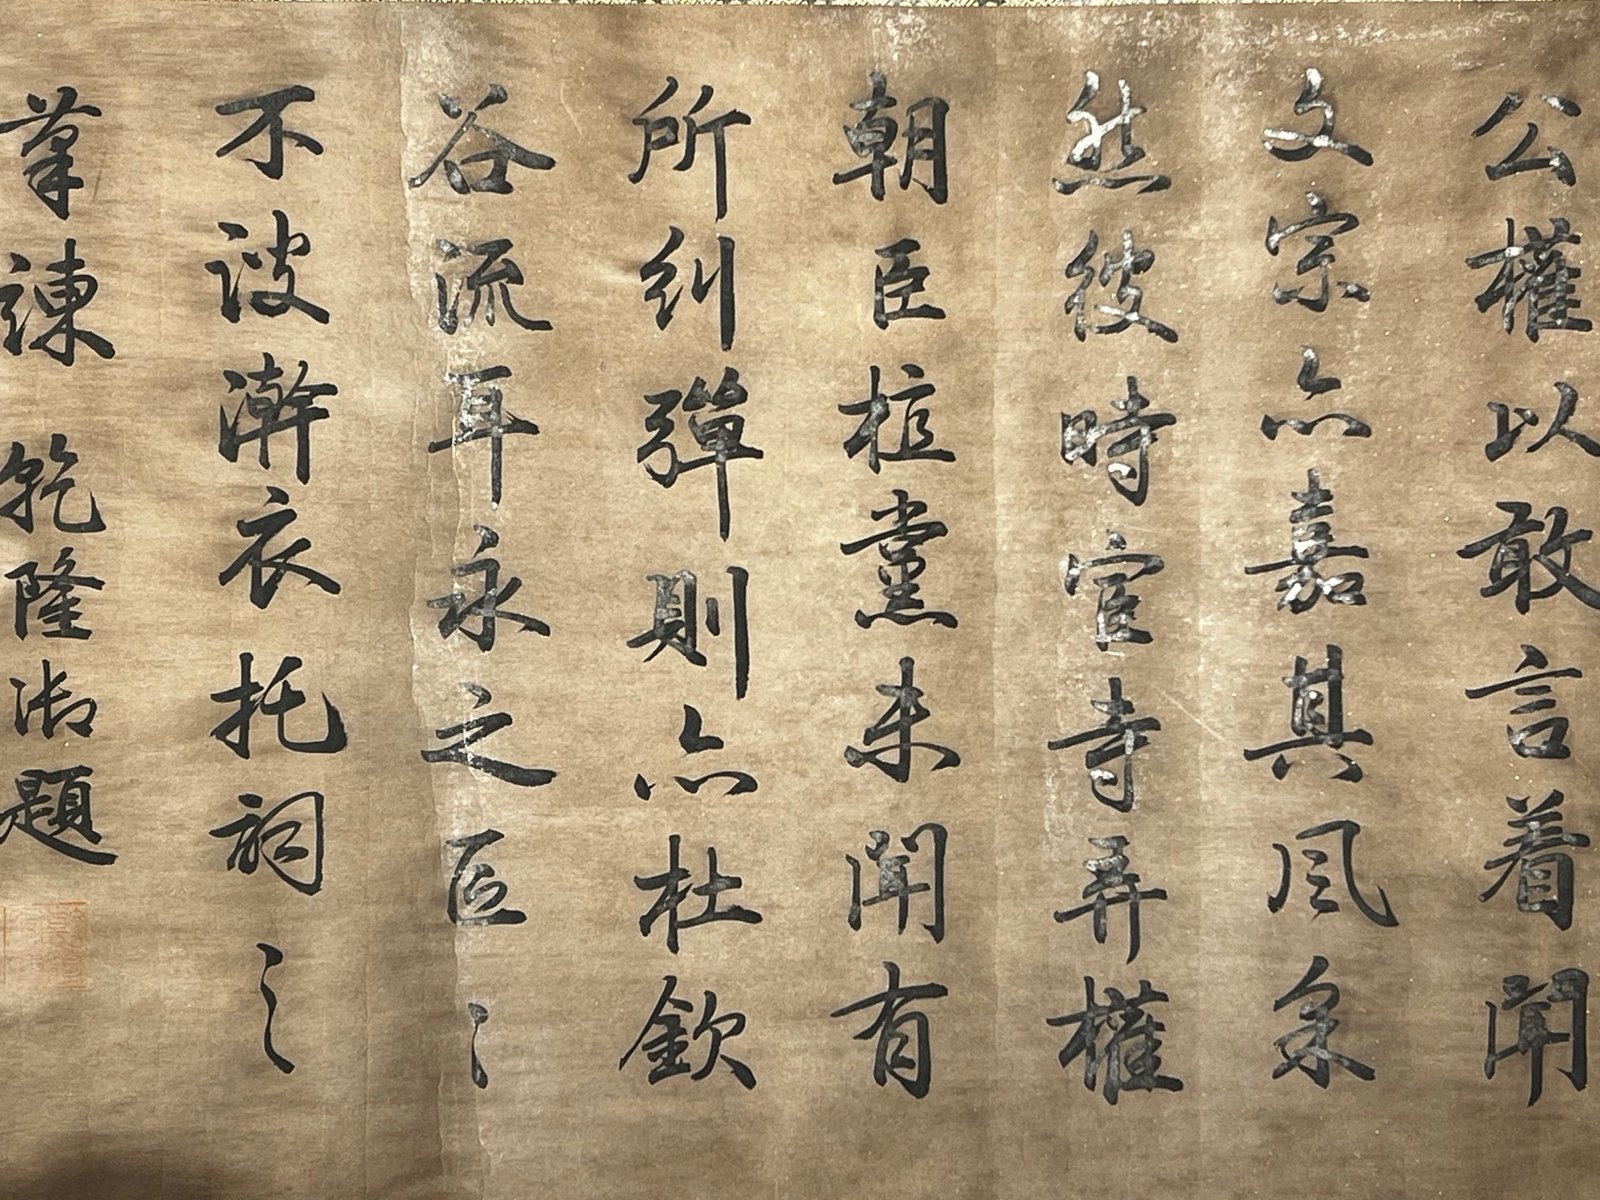 公權以敢言着聞
文宗亦嘉其風采
然彼時宦寺弄權
朝臣植黨未聞有
所糾彈則亦杜欽
谷流耳永之
不澣衣托詞之
筆諫 乾隆御題